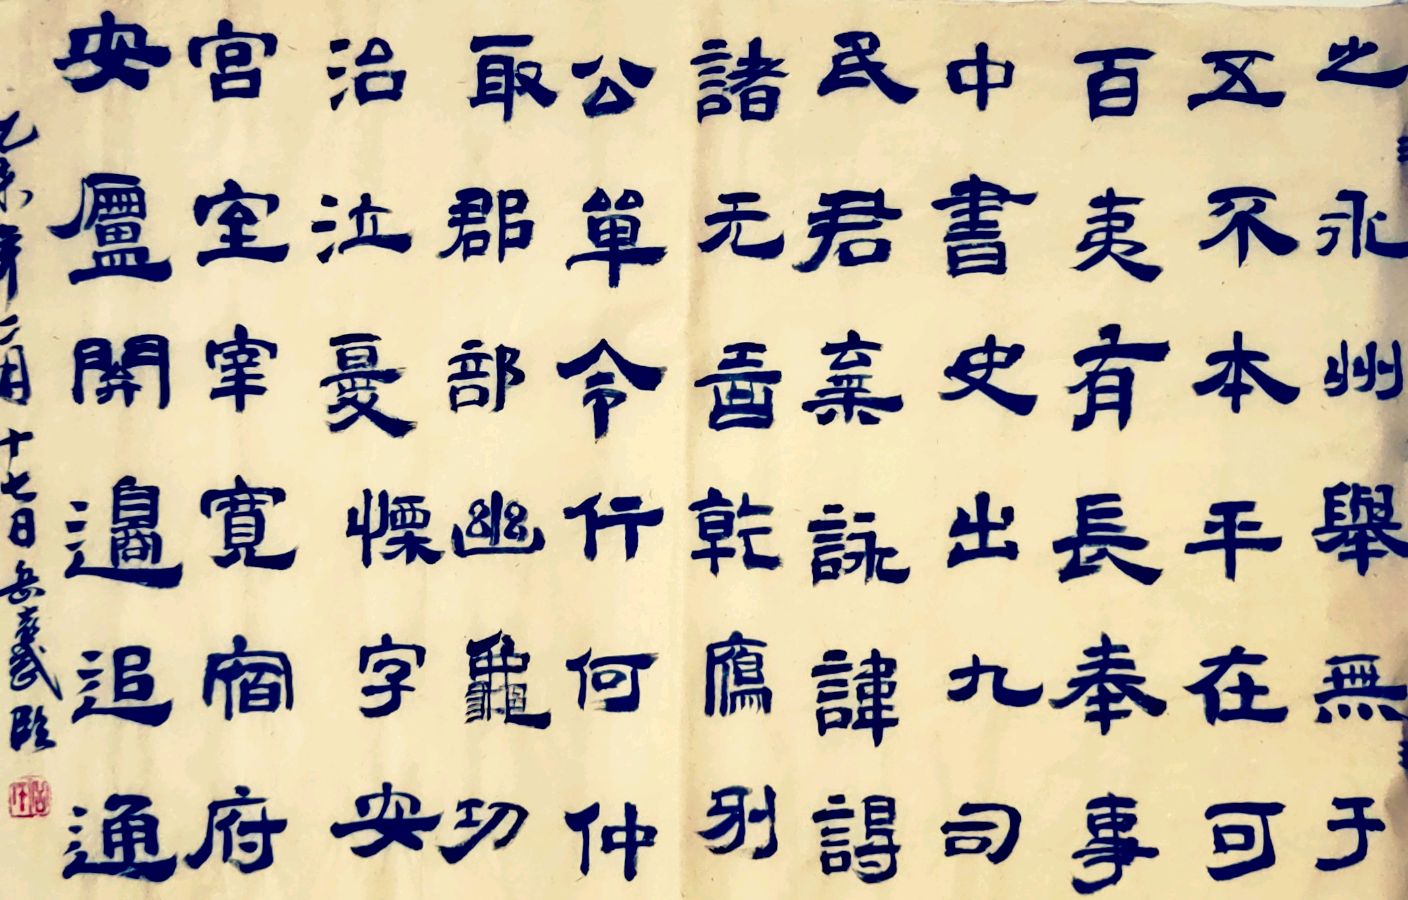 之永州舉無于
五不本平在可
百夷有長奉事
中書史出九司
民君棄詠諱
諸无乾別
公單令行何仲
取郡部幽龜功
治泣憂慄字安
宮室宰寬宿府
安廬開邊追通
乙未年二月十七日岳武臨